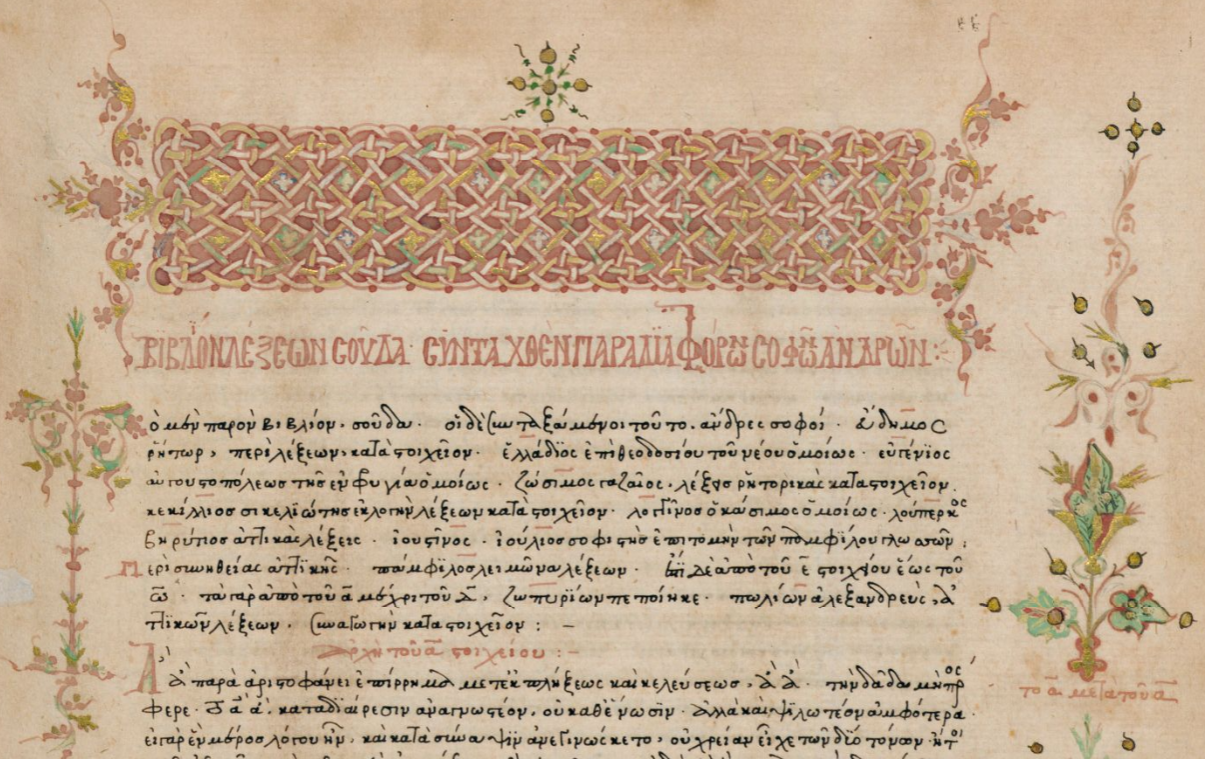 ΒΙΒΛΙΟΝ ΛΕΞΕΩΝ ΣΟΥΔΑ· ΣΥΝΤΑΧΘΕΝ ΠΑΡΑ ΔΙΑΦΟΡΩΝ ΣΟΦΩΝ ΑΝΔΡΩΝ:
ὁ μὲν παρὸν βιβλίον, σοῦδα· οἱ δὲ συνταξάμενοι τοῦτο, ἄνδρες σοφοί· εὔδημος
ῥήτωρ, περὶ λέξεων, κατὰ στοιχεῖον· ἑλλάδϊος ἐπὶ θεοδοσίου τοῦ νέου ὁμοίως· εὐγένϊος
αὐγουστοπόλεως τῆς ἐν φρυγία ὁμοίως· ζώσιμος γαζαῖος, λέξεις ῥητορικὰς κατὰ στοιχεῖον,
κεκίλλιος σικελιώτης ἐκλογὴν λέξεων κατὰ στοιχεῖον· λογγῖνος ὁ κάσιμος ὁμοίως· λούπερκος
βηρύτιος ἀττικὰς λέξεις· ἰουστῖνος· ἰούλιος σοφιστὴς ἐπιτομὴν τῶν παμφίλου γλωσσῶν·
περὶ συνηθείας ἀττϊκῆς· πάμφιλος λειμῶνα λέξεων· δὲ ἀπὸ τοῦ ε στοιχείου ἕως τοῦ
ω· τὰ γὰρ ἀπὸ τοῦ α μέχρι τοῦ δ, ζωπυρΐων πεποίηκε· πωλίων ἀλεξανδρεὺς, ἀτ
τϊκῶν λέξεων· συναγωγὴν κατὰ στοιχεῖον:–
ἀρχὴ τοῦ α στοιχείου:–
Ἆ ἆ παρὰ ἀριστοφάνει ἐπίρρημα μετ' ἐκπλήξεως καὶ κελεύσεως, ἆ ἆ· τὴν δᾷδα μή με πρόσ
φερε· τὸ ἆ ἆ, κατὰ δϊαίρεσιν ἀναγνωστέον, οὐ καθ' ἕνωσϊν· ἀλλὰ καὶ ψϊλωτέον ἀμφότερα·
εἰ γὰρ ἓν μέρος λόγου ἦν, καὶ κατὰ σύναψϊν ἀνεγϊνώσκετο, οὐ χρείαν εἶχε τῶν δύο τόνων ἤτοι
τὸ α μετὰ τοῦ α